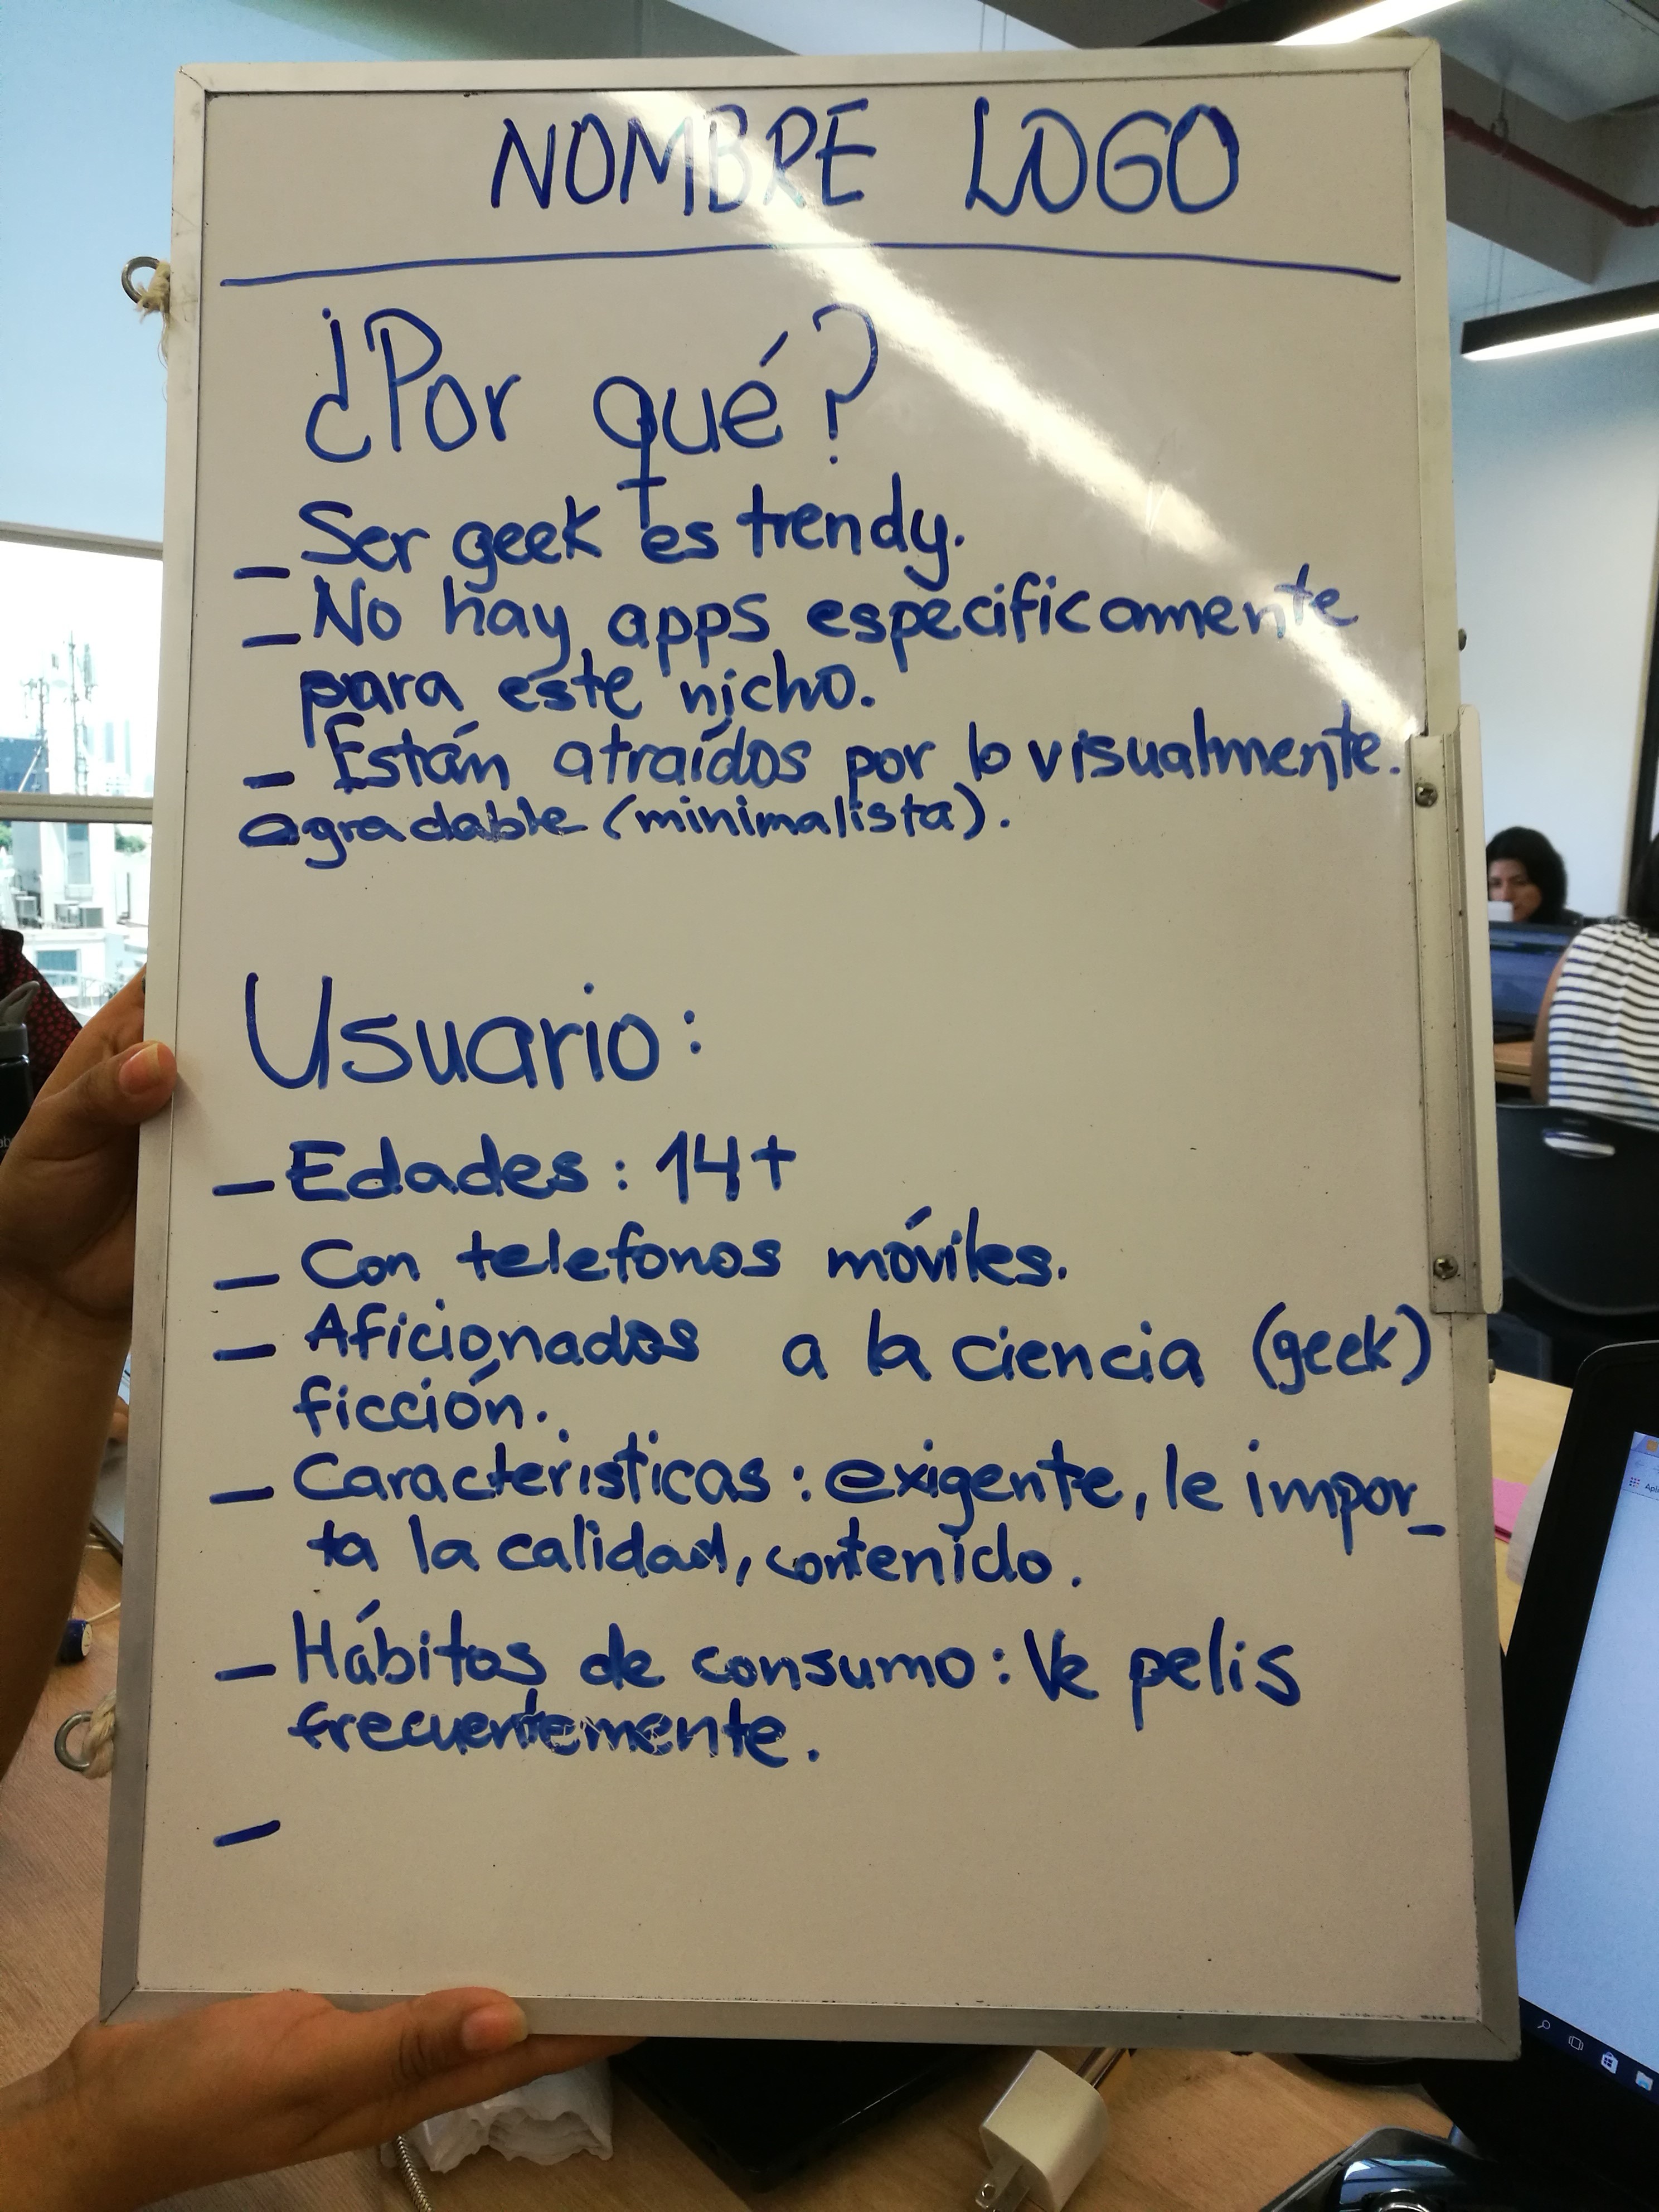 NOMBRE LOGO
¿Por qué?
_ Ser geek es trendy.
_ No hay apps especificamente
para este nicho.
_ Están atraídos por lo visualmente.
agradable (minimalista).
Usuario:
_ Edades: 14+
_ Con telefonos móviles.
_ Aficionados a la ciencia (geek)
ficción.
_ Caracteristicas: exigente, le impor_
ta la calidad, contenido.
_ Hábitos de consumo: Ve pelis
frecuentemente.
_